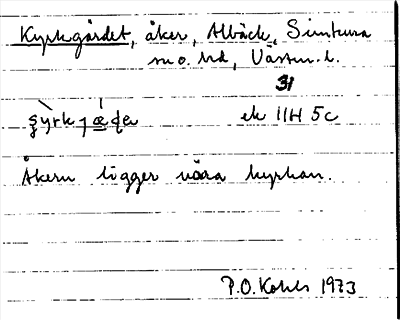 Kyrkgärdet, åker, Albäck, Simtuna
sn o. hd, Västm. l.
31
ek 11H 5c
Åkern ligger nära kyrkan.
P.O. Kohls 1973